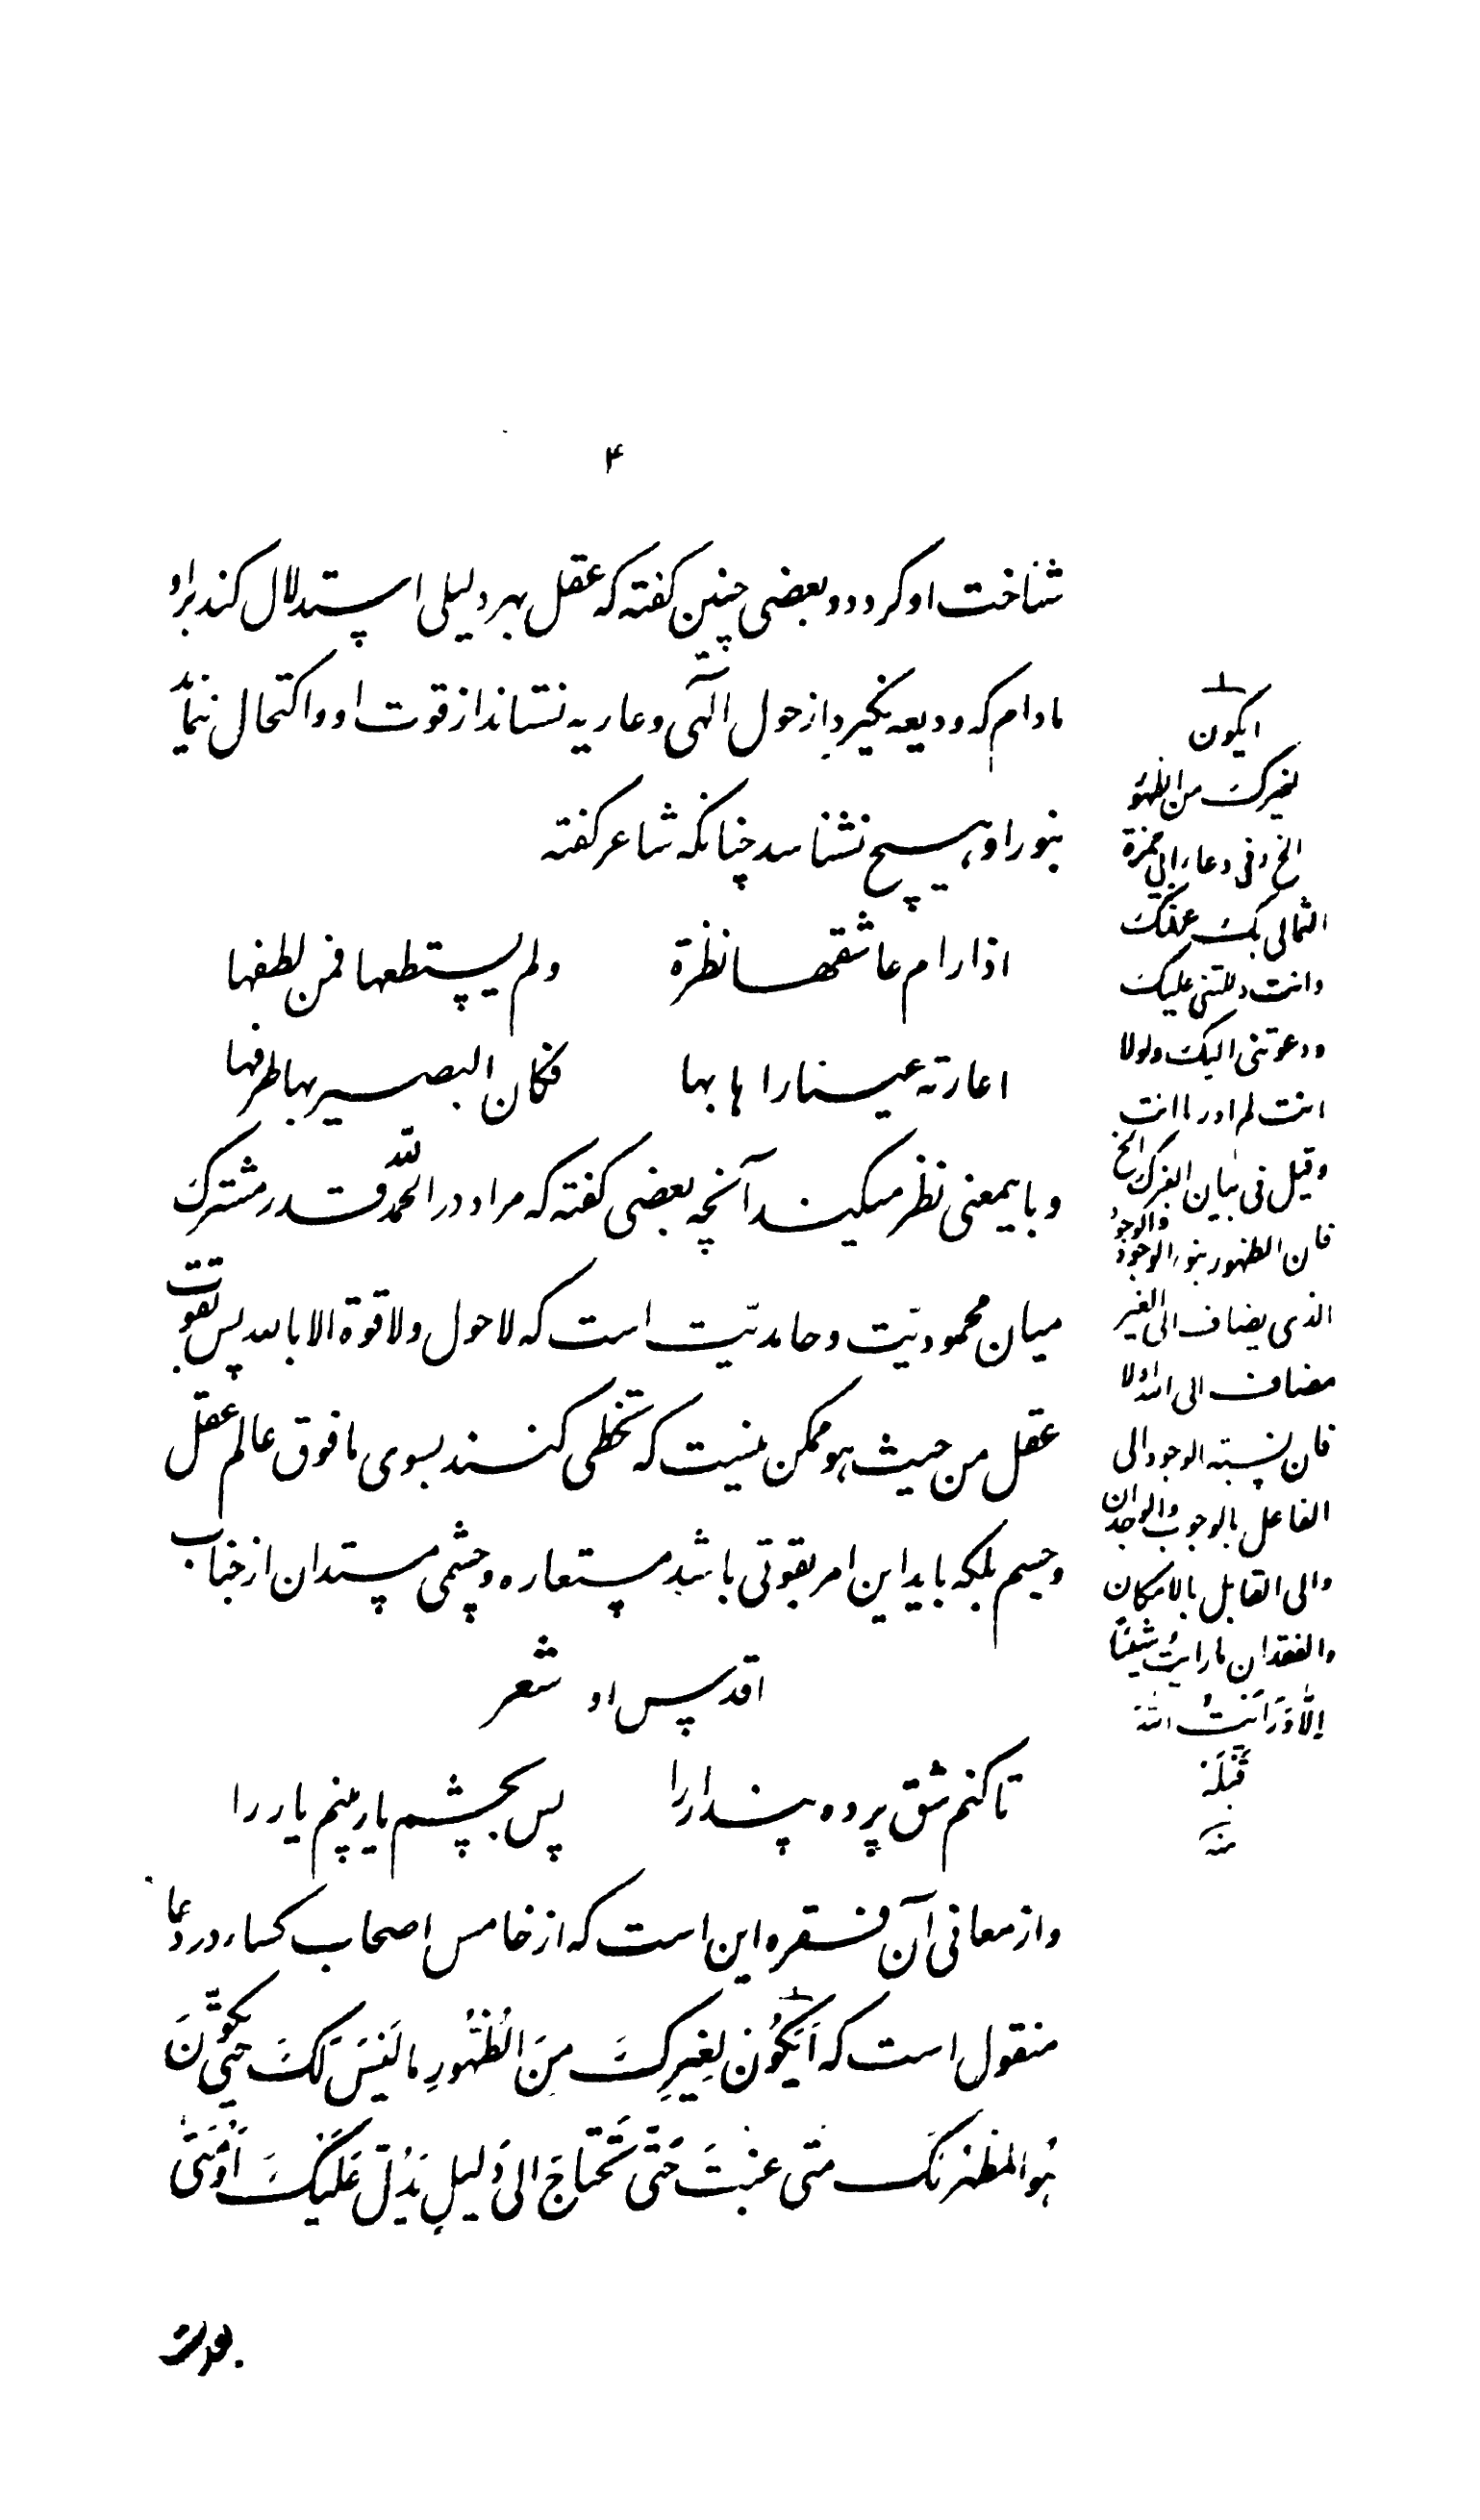 ۴
شناخت او کردد و بعضی چنین کفته که عقل بهر دلیلی استدلال کند بر او
مادام که ودیعه نکیرد از حول الٓهی و عاریه نستاند از قوت او و اکتحال ننماید
بنور او هیچ نشناسد چنانکه شاعر کفته
اذا رام عاشقها نظرة ولم یستطعها فمن لطفها
اعارته عینا راها بها فکان البصیر بها طرفها
و باینمعنی نظر میکند آنچه بعضی کفته که مراد در الحمد لله قدر مشترک
میان محمودیّت و حامدیّت است که لا حول ولا قوة الا بالله پس بقوت
عقل من حیث هو ممکن نیست که تخطی کند بسوی مافوق عالم عقل
و جسم بلکه باید این امر بقوتی باشد مستعاره و چشمی مستدان از جناب
اقدس او شعر
تا کنم شق پرده پندار را پس بچشم یار بینم یار را
و از معانی آن فقره این است که از خامس اصحاب کساء در دعا
منقول است که اَیَکُونُ لِغَیْرِکَ مِنَ الْظُهُورِ ما لَیْسَ لَکَ حَتّی یَکُونَ
هُوَ المُظْهِرُ لَکَ مَتی غِبْتَ حَتّی تَحْتاجَ اِلی دَلیلٍ یَدُلُّ عَلَیْکَ اَوْ مَتی
ایکون
لغیرک من الظهور
الخ و فی دعاء ابی حمزة
الثمالی بک عرفتک
و انت دللتنی علیک
و دعوتنی الیک و لولا
انت لم ادر ما انت
و قیل فی بیان الغیرک الخ
فان الظهور بنور الوجود و الوجود
الذی یضاف الی الغیر
مضاف الی الله اولا
فان نسبة الوجود الی
الفاعل بالوجوب و الوجدان
و الی القابل بالامکان
و الفقدان ما رایتُ شیئاً
اِلّا وَ رَاَیْتُ الله
قَبْلَه
منه